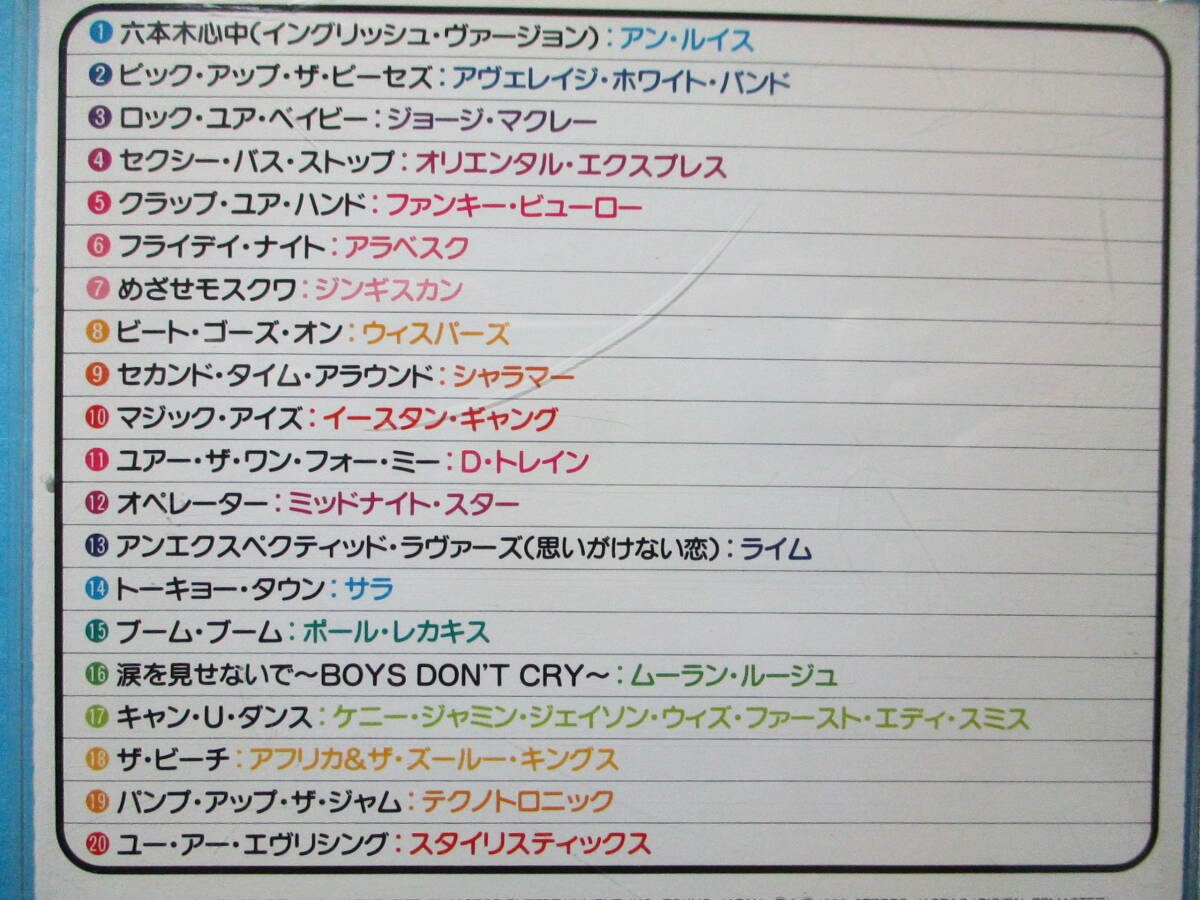 1 六本木心中(イングリッシュ・ヴァージョン):アン・ルイス
2 ピック・アップ・ザ・ピーセズ:アヴェレイジ・ホワイト・バンド
3 ロック・ユア・ベイビー:ジョージ・マクレー
4 セクシー・バス・ストップ:オリエンタル・エクスプレス
5 クラップ・ユア・ハンド:ファンキー・ビューロー
6 フライデイ・ナイト:アラベスク
7 めざせモスクワ:ジンギスカン
8 ビート・ゴーズ・オン:ウィスパーズ
9 セカンド・タイム・アラウンド:シャラマー
10 マジック・アイズ:イースタン・ギャング
11 ユアー・ザ・ワン・フォー・ミー:D・トレイン
12 オペレーター:ミッドナイト・スター
13 アンエクスペクティッド・ラヴァーズ(思いがけない恋):ライム
14 トーキョー・タウン:サラ
15 ブーム・ブーム:ポール・レカキス
16 涙を見せないで〜BOYS DON'T CRY〜:ムーラン・ルージュ
17 キャン・U・ダンス:ケニー・ジャミン・ジェイソン・ウィズ・ファースト・エディ・スミス
18 ザ・ビーチ:アフリカ&ザ・ズールー・キングス
19 パンプ・アップ・ザ・ジャム:テクノトロニック
20 ユー・アー・エヴリシング:スタイリスティックス